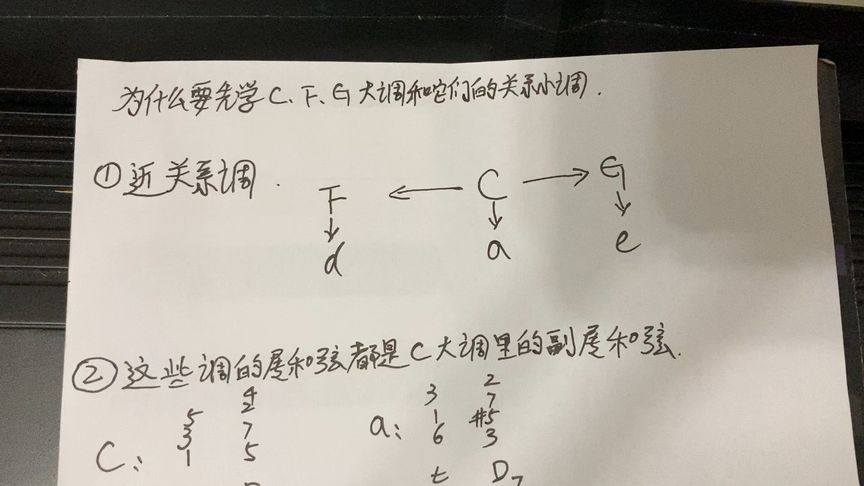 为什么要先学C、F、G大调和它们的关系小调.
①近关系调.
F ← C → G
↓ ↓ ↓
d a e
②这些调的属和弦都是C大调里的副属和弦.
4 3 2
5 2 1 7
3 7 a: 6 #5
C: 1 5 3
t D7